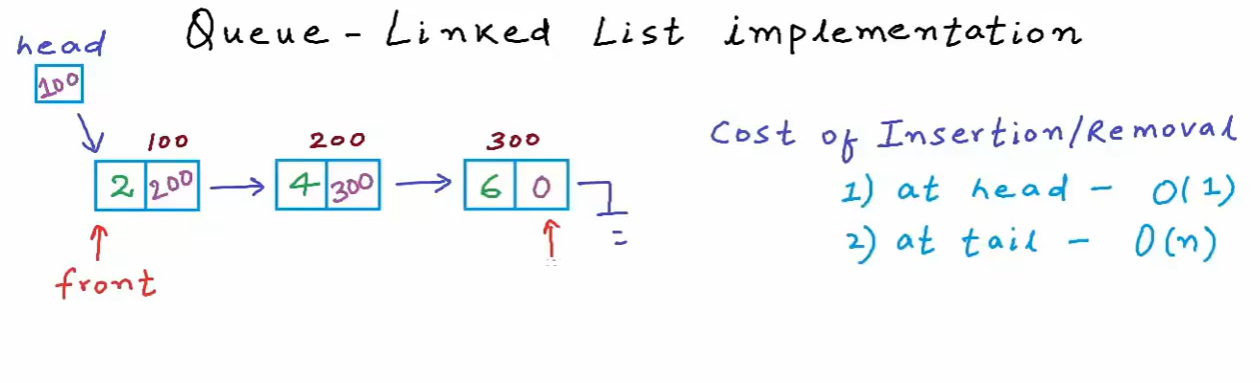 Queue - Linked List implementation
head
100
100 200 300
2 200 4 300 6 0
front
Cost of Insertion/Removal
1) at head - O(1)
2) at tail - O(n)